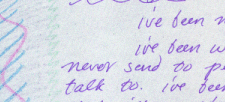 ive been
ive been
never send to
talk to. ive been